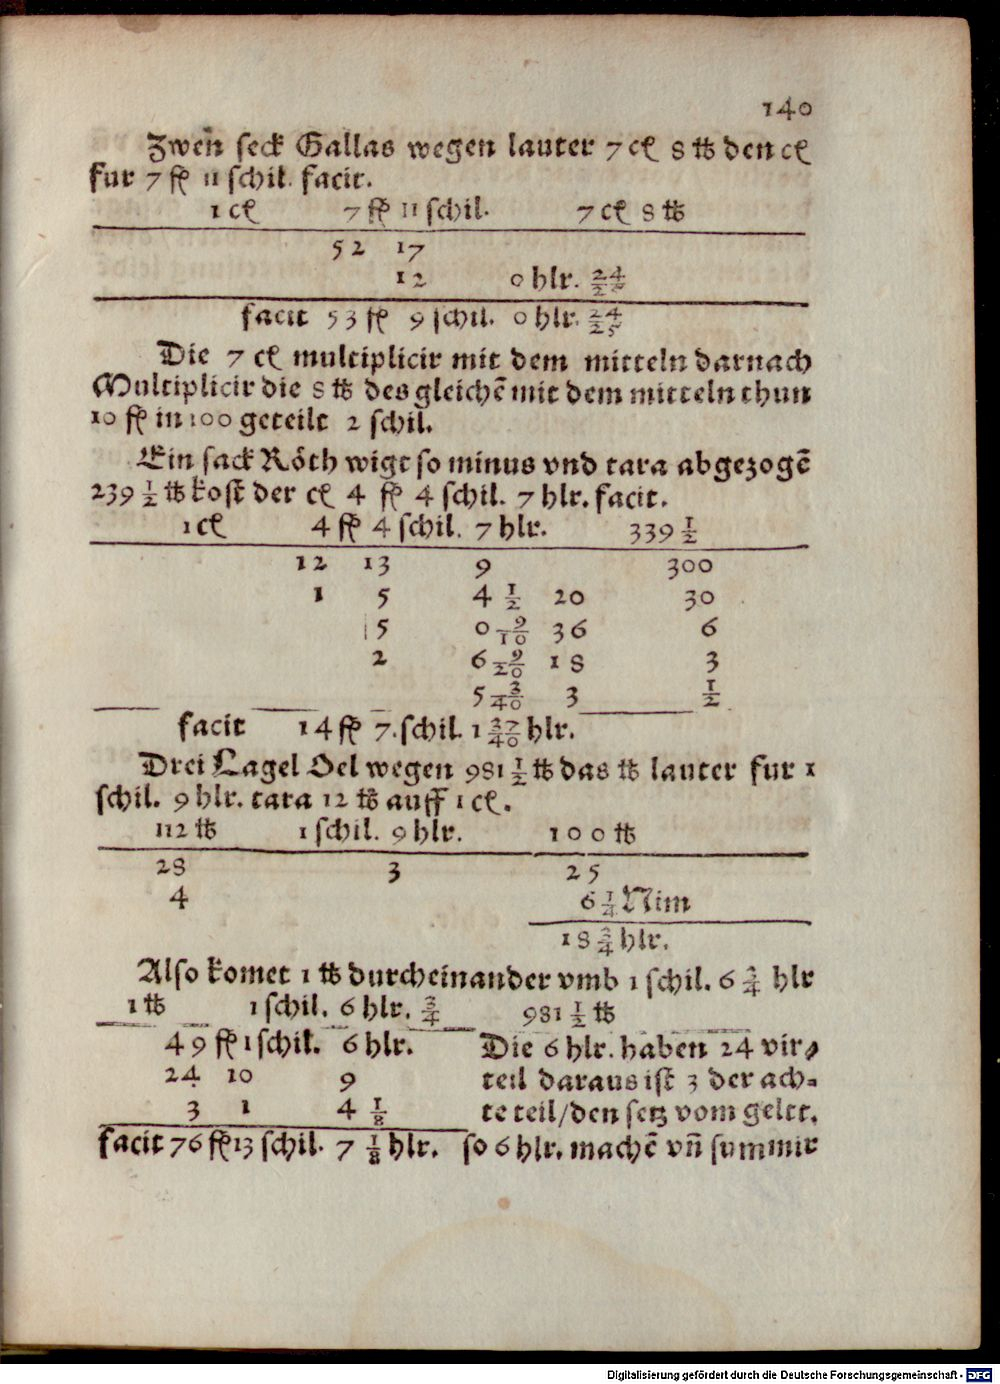 140
Zwen seck Gallas wegen lauter 7 cꝭ 8 ℔ den cꝭ
fur 7 fl̃ 11 schil. facit.
1 cꝭ 7 fl̃ 11 schil. 7 cꝭ 8 ℔
52 17
12 0 hlr. 24/25
facit 53 fl̃ 9 schil. 0 hlr. 24/25
Die 7 cꝭ multiplicir mit dem mitteln darnach
Multiplicir die 8 ℔ des gleichẽ mit dem mitteln thun
10 fl̃ in 100 geteilt 2 schil.
Ein sack Röth wigt so minus vnd tara abgezogẽ
239 1/2 ℔ kost der cꝭ 4 fl̃ 4 schil. 7 hlr. facit.
1 cꝭ 4 fl̃ 4 schil. 7 hlr. 339 1/2
12 13 9 300
1 5 4 1/2 20 30
5 0 9/10 36 6
2 6 9/20 18 3
5 3/40 3 1/2
facit 14 fl̃ 7. schil. 1 37/40 hlr.
Drei Lagel Oel wegen 981 1/2 ℔ das ℔ lauter fur 1
schil. 9 hlr. tara 12 ℔ auff 1 cꝭ.
112 ℔ 1 schil. 9 hlr. 100 ℔
28 3 25
4 6 1/4 Nim
18 3/4 hlr.
Also komet 1 ℔ durcheinander vmb 1 schil. 6 3/4 hlr
1 ℔ 1 schil. 6 hlr. 3/4 981 1/2 ℔
49 fl̃ 1 schil. 6 hlr. Die 6 hlr. haben 24 vir⸗
24 10 9 teil daraus ist 3 der ach⸗
3 1 4 1/8 te teil/den setz vom geltt.
facit 76 fl̃ 13 schil. 7 1/8 hlr. so 6 hlr. machẽ vñ summir
Digitalisierung gefördert durch die Deutsche Forschungsgemeinschaft - DFG